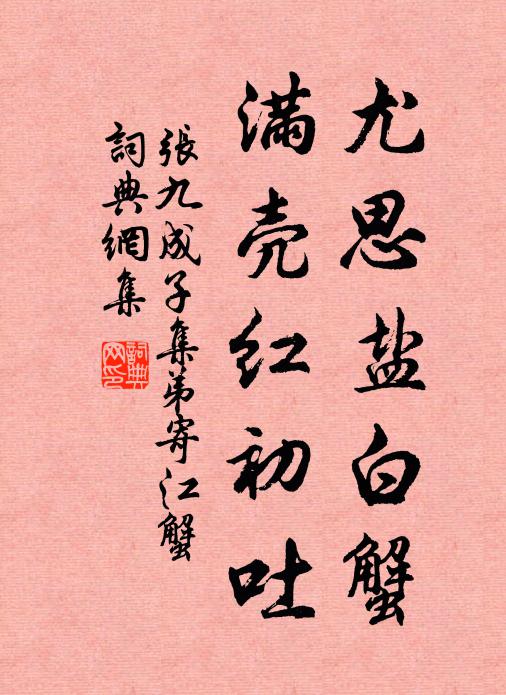 尤思盐白蟹
满壳红初吐
張九成子集弟寄江蟹
詞典網集
詞典
网印